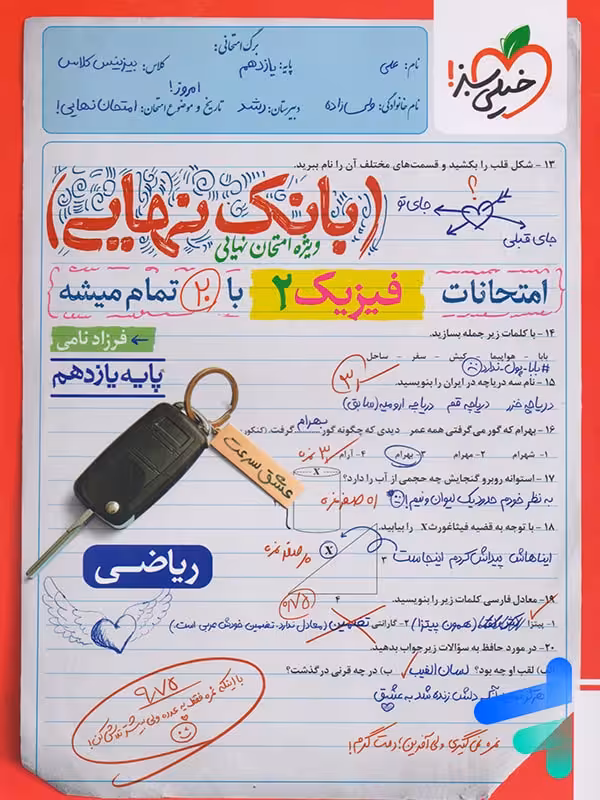 خیلی سبز!
برگ امتحانی:
نام: علی
پایه: یازدهم
کلاس: بیزینس کلاس
نام خانوادگی:
دبیرستان: رشد
تاریخ و موضوع امتحان: امتحان نهایی!
امروز!
۱۳ - شکل قلب را بکشید و قسمت‌های مختلف آن را نام ببرید.
؟
جای تو
جای قبلی
(بانک نهایی)
ویژه امتحان نهایی
امتحانات فیزیک ۲ با ۲۰ تمام میشه
۱۴ - با کلمات زیر جمله بسازید.
بابا - هواپیما - کیش - سفر - ساحل
#بابا-پول-ندارد
فرزاد نامی
پایه یازدهم
۱۵ - نام سه دریاچه در ایران را بنویسید.
دریاچه خزر دریاچه قم دریاچه ارومیه (سابق)
۱۶ - بهرام که گور می‌گرفتی همه عمر دیدی که چگونه گور بهرام گرفت.
۱- شهرام ۲- مهرام ۳- بهرام ۴- آرام
۳ نمره
۱۷ - استوانه روبرو گنجایش چه حجمی از آب را دارد؟
X
به نظر خودم حدود یک لیوان و نیم!
۱۸ - با توجه به قضیه فیثاغورث X را بیابید.
ایناهاش پیداش کردم اینجاست
X
۳
۴
عشق سرعت
ریاضی
۱۹ - معادل فارسی کلمات زیر را بنویسید.
۱- پیتزا (همون پیتزا) ۲- گارانتی تضمین (معادل ندارد. تضمین خودش عربی است.)
۲۰ - در مورد حافظ به سؤالات زیر جواب بدهید.
الف) لقب او چه بود؟ لسان الغیب ب) در چه قرنی در گذشت؟
هرگز نمیرد آنکه دلش زنده شد به عشق
۹/۷۵